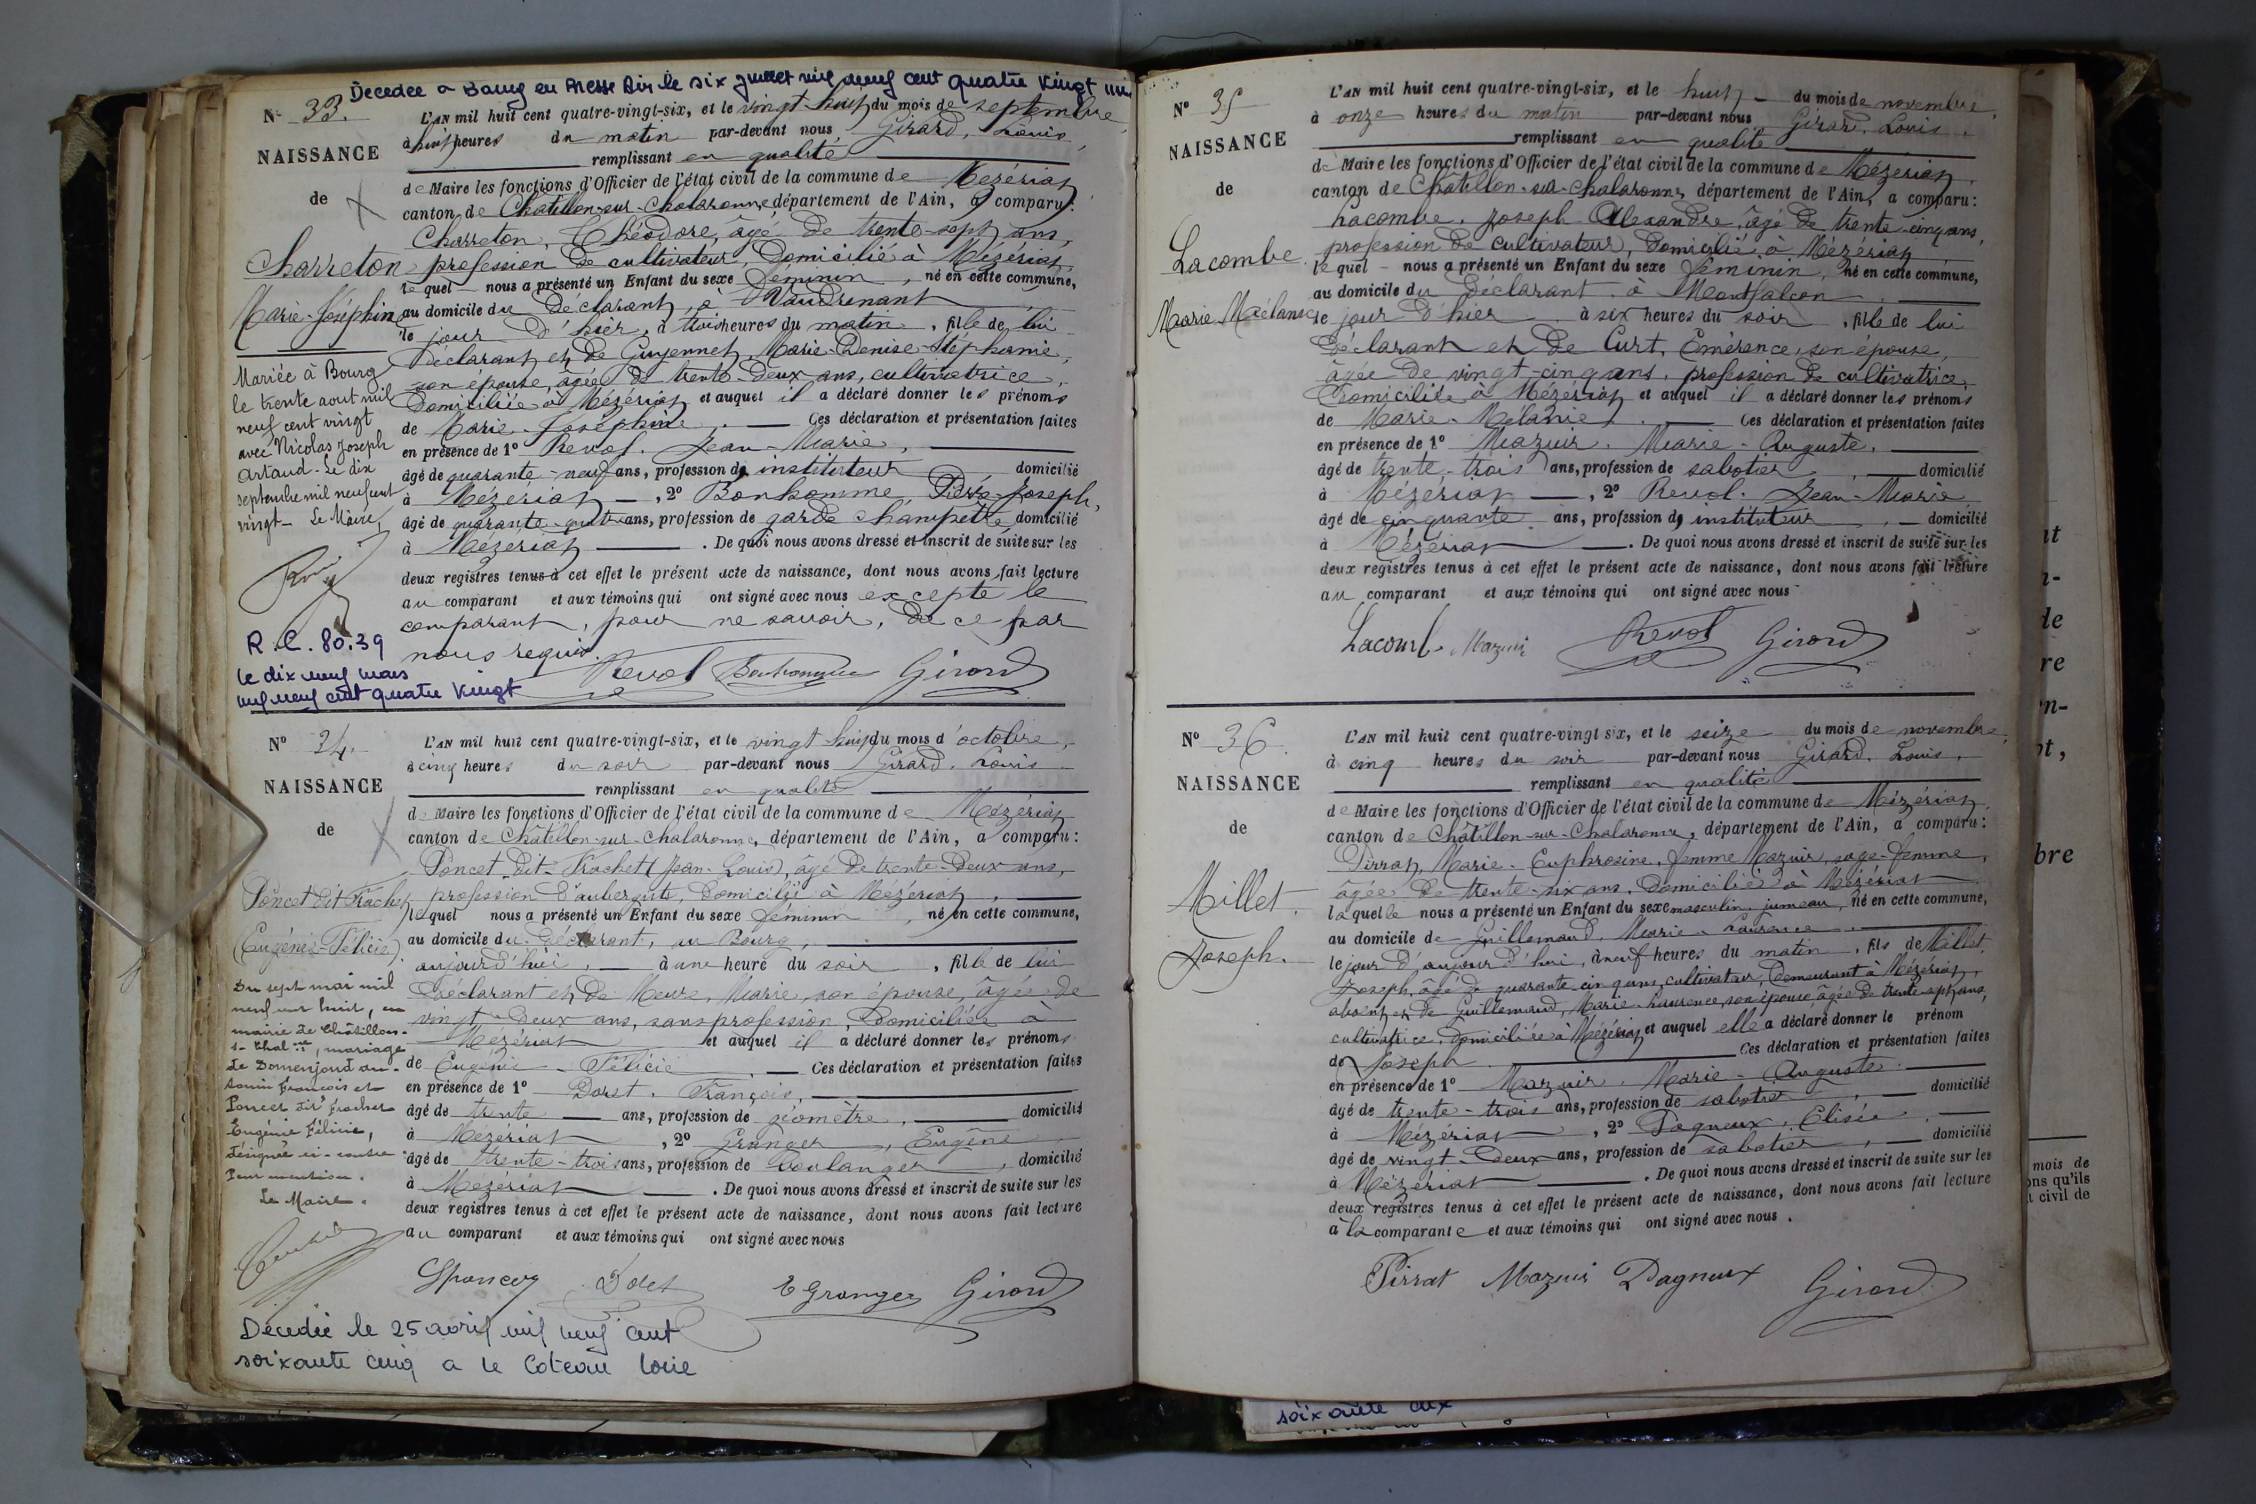 Décédée a Bourg en Bresse Ain le six juillet mil neuf cent quatre vingt un
N° 33.
NAISSANCE
de
Charreton
Marie-Joséphine
Mariée à Bourg
le trente aout mil
neuf cent vingt
avec Nicolas Joseph
Artaud - Le dix
septembre mil neuf cent
vingt - Le Maire,
R.C. 80.39
le dix neuf mars
mil neuf cent quatre vingt
L'AN mil huit cent quatre-vingt-six, et le vingt-huit du mois de septembre,
à huit heures du matin par-devant nous Girard, Louis,
remplissant en qualité
de Maire les fonctions d'Officier de l'état civil de la commune de Mézériat
canton de Châtillon-sur-Chalaronne département de l'Ain, a comparu:
Charreton, Théodore, âgé de trente-sept ans,
profession de cultivateur, domicilié à Mézériat,
lequel nous a présenté un Enfant du sexe féminin, né en cette commune,
au domicile du déclarant, à Vaudrenant
le jour d'hier, à trois heures du matin, fille de lui
déclarant et de Guyennet, Marie-Denise-Stéphanie,
son épouse, âgée de trente-deux ans, cultivatrice,
domiciliée à Mézériat et auquel il a déclaré donner les prénoms
de Marie-Joséphine. Ces déclaration et présentation faites
en présence de 1° Revol, Jean-Marie,
âgé de quarante-neuf ans, profession de instituteur domicilié
à Mézériat, 2° Bonhomme, Pierre-Joseph,
âgé de quarante-quatre ans, profession de garde champêtre domicilié
à Mézériat. De quoi nous avons dressé et inscrit de suite sur les
deux registres tenus à cet effet le présent acte de naissance, dont nous avons fait lecture
au comparant et aux témoins qui ont signé avec nous excepté le
comparant, pour ne savoir, de ce par
nous requis.
Revol Bonhomme Girard
N° 34.
NAISSANCE
de
Poncet dit Frachet
(Eugénie-Félicie)
Du sept mai mil
neuf cent huit, en
mairie de Châtillon-
s-Chalne, mariage
de Domenjoud An-
tonin François et
Poncet dit Frachet
Eugénie Félicie,
désignée ci-contre
Pour mention.
Le Maire.
L'AN mil huit cent quatre-vingt-six, et le vingt huit du mois d'octobre,
à cinq heures du soir par-devant nous Girard, Louis
remplissant en qualité
de Maire les fonctions d'Officier de l'état civil de la commune de Mézériat
canton de Châtillon-sur-Chalaronne, département de l'Ain, a comparu:
Poncet dit Frachet (Jean-Louis), âgé de trente-deux ans,
profession d'aubergiste, domicilié à Mézériat,
lequel nous a présenté un Enfant du sexe féminin, né en cette commune,
au domicile du déclarant, au Bourg,
aujourd'hui, à une heure du soir, fille de lui
déclarant et de Meure, Marie, son épouse, âgée de
vingt-deux ans, sans profession, domiciliée à
Mézériat et auquel il a déclaré donner les prénoms
de Eugénie-Félicie. Ces déclaration et présentation faites
en présence de 1° Doret, François,
âgé de trente ans, profession de géomètre, domicilié
à Mézériat, 2° Granger, Eugène
âgé de trente-trois ans, profession de boulanger, domicilié
à Mézériat. De quoi nous avons dressé et inscrit de suite sur les
deux registres tenus à cet effet le présent acte de naissance, dont nous avons fait lecture
au comparant et aux témoins qui ont signé avec nous
Doret E Granger Girard
Décédée le 25 avril mil neuf cent
soixante cinq a le Coteau Loire
N° 35
NAISSANCE
de
Lacombe
Marie-Mélanie
L'AN mil huit cent quatre-vingt-six, et le huit du mois de novembre,
à onze heures du matin par-devant nous Girard, Louis,
remplissant en qualité
de Maire les fonctions d'Officier de l'état civil de la commune de Mézériat,
canton de Châtillon-sur-Chalaronne, département de l'Ain, a comparu:
Lacombe, Joseph Alexandre, âgé de trente-cinq ans,
profession de cultivateur, domicilié à Mézériat
lequel nous a présenté un Enfant du sexe féminin, né en cette commune,
au domicile du déclarant à Montfalcon
le jour d'hier à six heures du soir, fille de lui
déclarant et de Curt, Émérence, son épouse,
âgée de vingt-cinq ans, profession de cultivatrice,
domiciliée à Mézériat et auquel il a déclaré donner les prénoms
de Marie-Mélanie. Ces déclaration et présentation faites
en présence de 1° Mazuir, Marie-Auguste,
âgé de trente-trois ans, profession de sabotier, domicilié
à Mézériat, 2° Revol, Jean-Marie
âgé de cinquante ans, profession de instituteur, domicilié
à Mézériat. De quoi nous avons dressé et inscrit de suite sur les
deux registres tenus à cet effet le présent acte de naissance, dont nous avons fait lecture
au comparant et aux témoins qui ont signé avec nous
Lacomb. Mazuir Revol Girard
N° 36.
NAISSANCE
de
Millet.
Joseph.
L'AN mil huit cent quatre-vingt six, et le seize du mois de novembre,
à cinq heures du soir par-devant nous Girard, Louis,
remplissant en qualité
de Maire les fonctions d'Officier de l'état civil de la commune de Mézériat,
canton de Châtillon-sur-Chalaronne, département de l'Ain, a comparu:
Pirrat, Marie-Euphrosine, femme Mazuir, sage-femme,
âgée de trente-six ans, domiciliée à Mézériat
laquelle nous a présenté un Enfant du sexe masculin, jumeau, né en cette commune,
au domicile de Guillemaud, Marie-Laurence
le jour d'aujourd'hui, à neuf heures du matin, fils de Millet,
Joseph, âgé de quarante-cinq ans, cultivateur, demeurant à Mézériat,
absent, et de Guillemaud, Marie-Laurence, son épouse âgée de trente-sept ans,
cultivatrice, domiciliée à Mézériat et auquel elle a déclaré donner le prénom
de Joseph Ces déclaration et présentation faites
en présence de 1° Mazuir, Marie-Auguste
âgé de trente-trois ans, profession de sabotier, domicilié
à Mézériat, 2° Dagneux, Elisée
âgé de vingt-deux ans, profession de sabotier, domicilié
à Mézériat. De quoi nous avons dressé et inscrit de suite sur les
deux registres tenus à cet effet le présent acte de naissance, dont nous avons fait lecture
à la comparante et aux témoins qui ont signé avec nous.
Pirrat Mazuir Dagneux Girard
mois de
ons qu'ils
t civil de